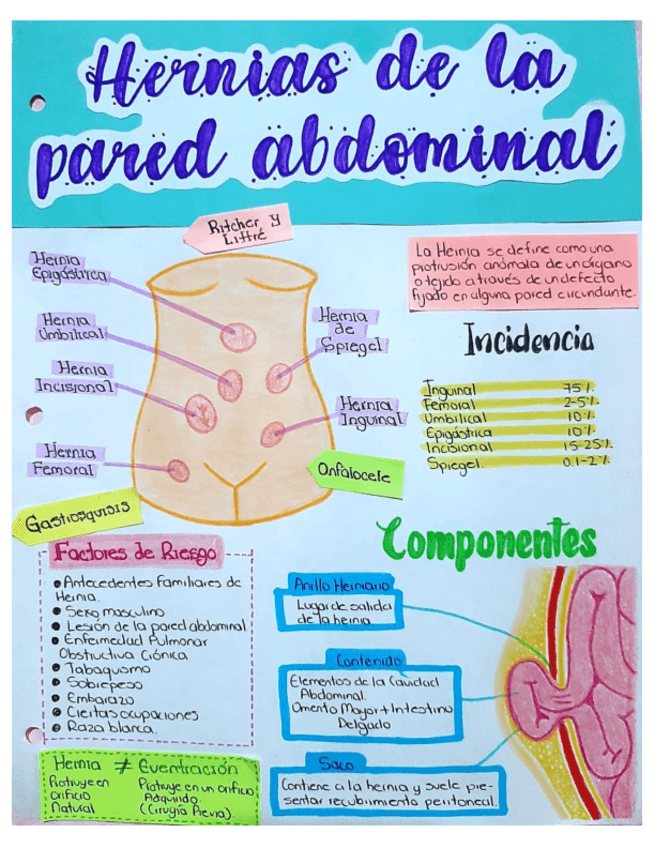 Hernias de la
pared abdominal
Ritcher y
Littré
Hernia
Epigástrica
Hernia
Umbilical
Hernia
Incisional
Hernia
Femoral
Hernia
de
Spiegel
Hernia
Inguinal
Onfalocele
Gastrosquisis
La Hernia se define como una
protrusión anómala de un órgano
o tejido a través de un defecto
fijado en alguna pared circundante.
Incidencia
Inguinal 75%
Femoral 2-5%
Umbilical 10%
Epigástrica 10%
Incisional 15-25%
Spiegel 0.1-2%
Factores de Riesgo
• Antecedentes Familiares de
Hernia.
• Sexo masculino
• Lesión de la pared abdominal
• Enfermedad Pulmonar
Obstructiva Crónica
• Tabaquismo
• Sobrepeso
• Embarazo
• Ciertas ocupaciones
• Raza blanca.
Hernia ≠ Eventración
Protruye en
orificio
Natural
Protruye en un orificio
Adquirido.
(Cirugía Previa).
Componentes
Anillo Herniario
Lugar de salida
de la hernia
Contenido
Elementos de la Cavidad
Abdominal.
Omento Mayor + Intestino
Delgado
Saco
Contiene a la hernia y suele pre-
sentar recubrimiento peritoneal.